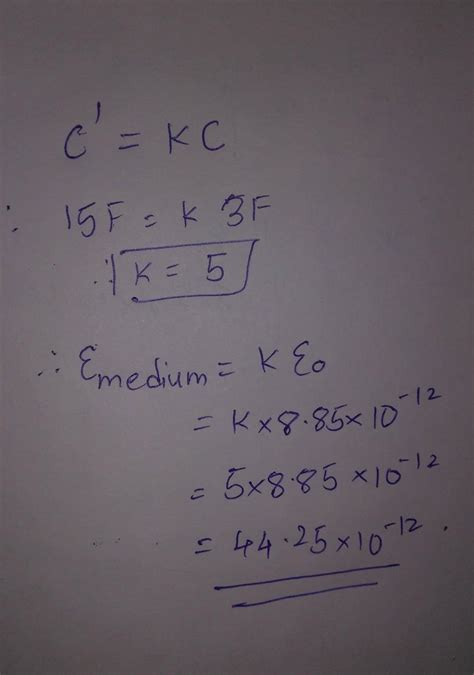 C' = KC
∴ 15F = K 3F
∴ K = 5
∴ Ɛmedium = K Ɛo
= K×8.85×10⁻¹²
= 5×8.85×10⁻¹²
= 44.25×10⁻¹².